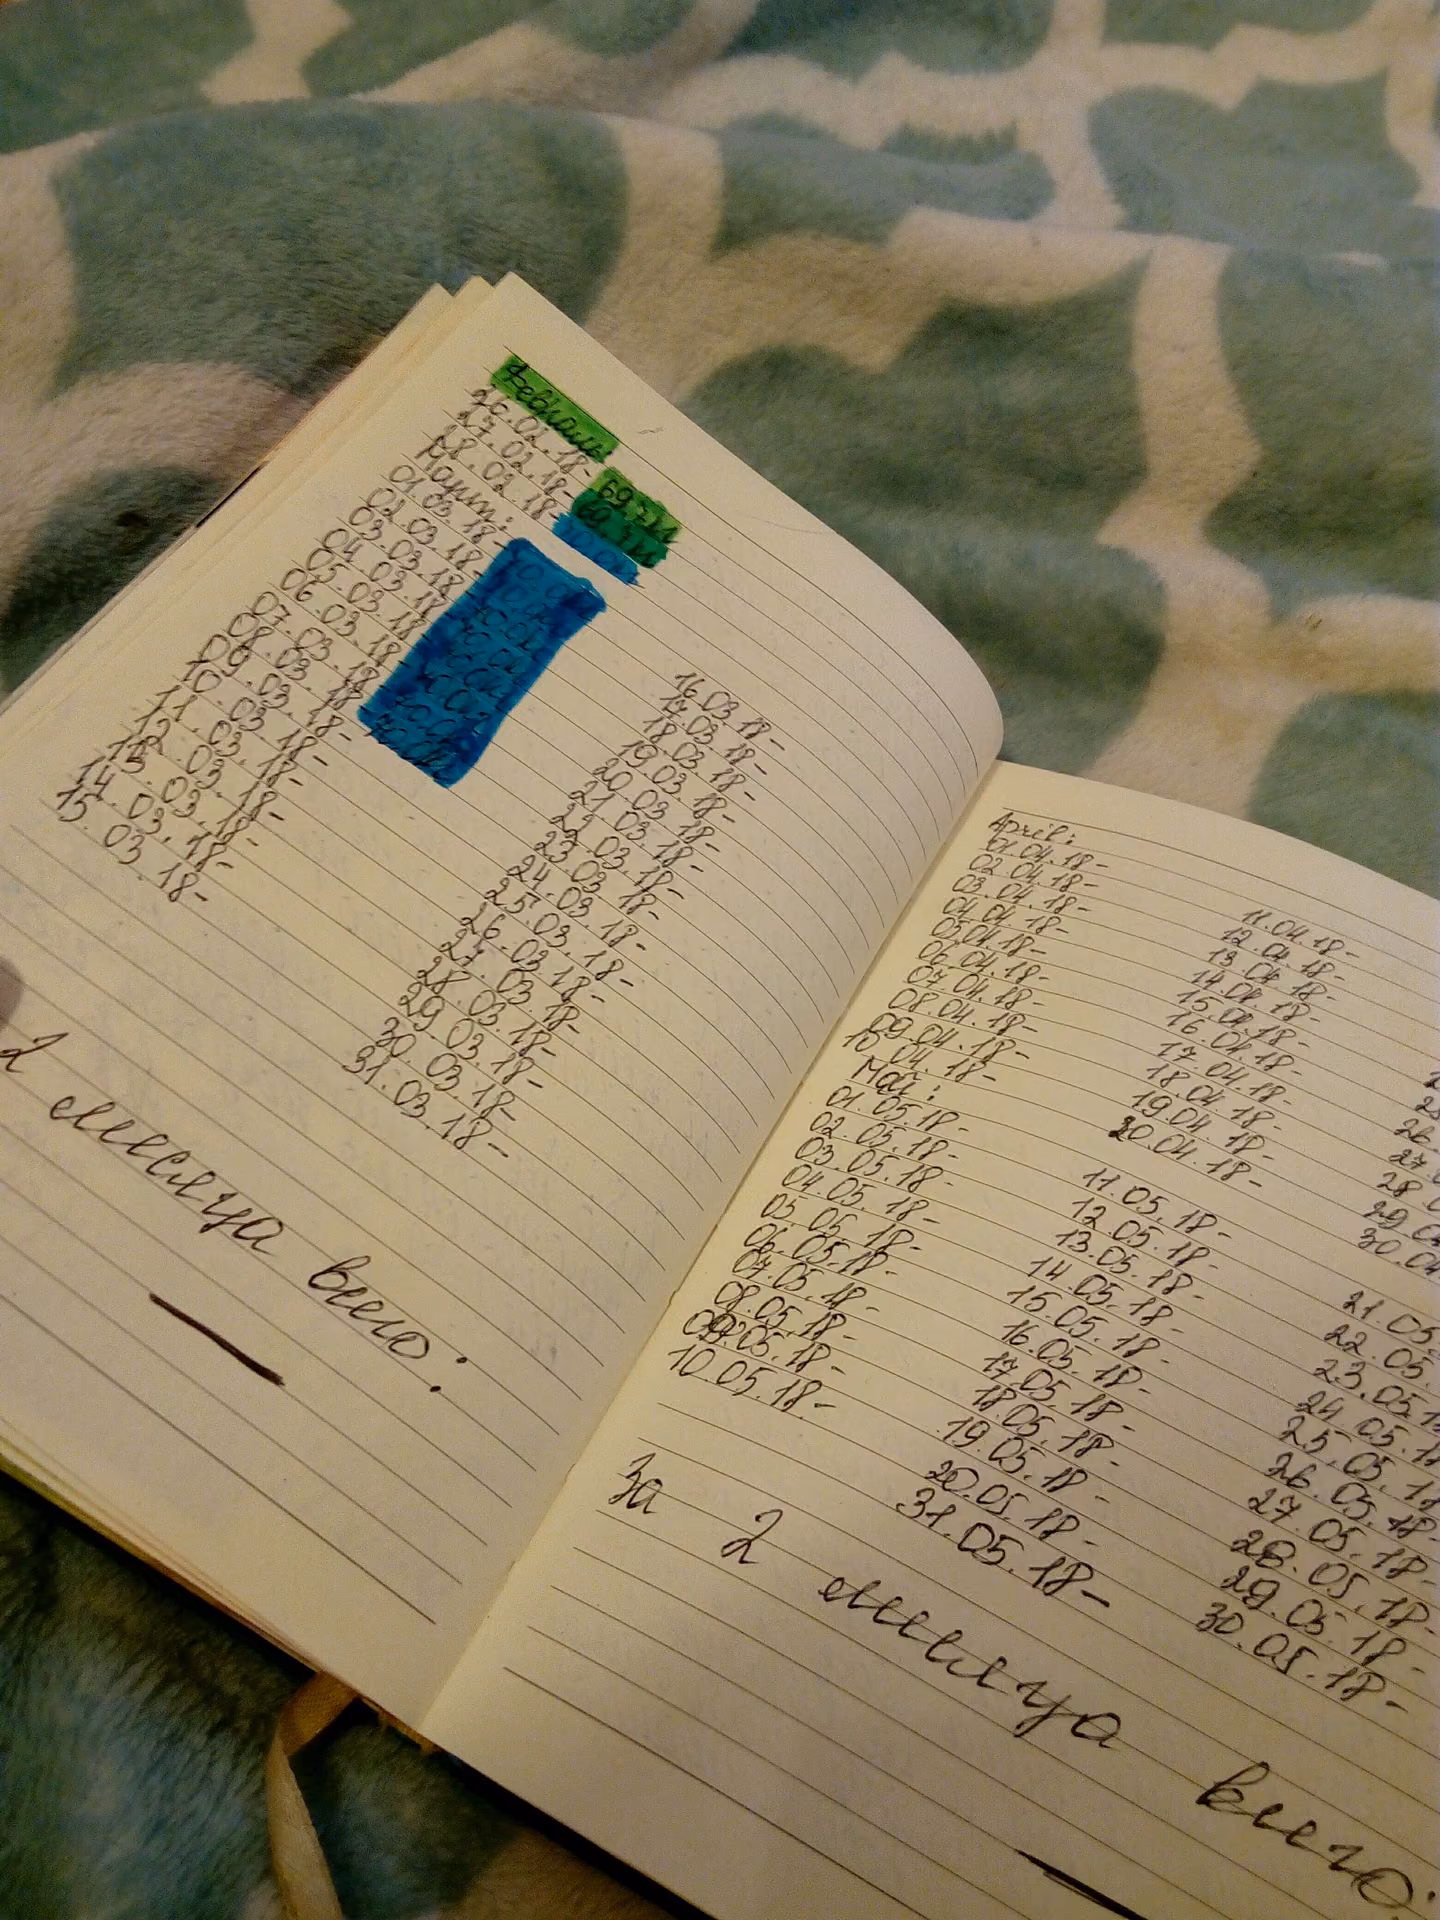 Февраль
20.02.18-
27.02.18-69.7
28.02.18-
Март:
01.03.18-
02.03.18-
03.03.18-
04.03.18-
05.03.18-
06.03.18-
07.03.18-
08.03.18-
09.03.18-
10.03.18-
11.03.18-
12.03.18-
13.03.18-
14.03.18-
15.03.18-
16.03.18-
17.03.18-
18.03.18-
19.03.18-
20.03.18-
21.03.18-
22.03.18-
23.03.18-
24.03.18-
25.03.18-
26.03.18-
27.03.18-
28.03.18-
29.03.18-
30.03.18-
31.03.18-
2 месяца всего:
April:
01.04.18-
02.04.18-
03.04.18-
04.04.18-
05.04.18-
06.04.18-
07.04.18-
08.04.18-
09.04.18-
10.04.18-
11.04.18-
12.04.18-
13.04.18-
14.04.18-
15.04.18-
16.04.18-
17.04.18-
18.04.18-
19.04.18-
20.04.18-
26.
27.
28.0
29.04
30.04
Май:
01.05.18-
02.05.18-
03.05.18-
04.05.18-
05.05.18-
06.05.18-
07.05.18-
08.05.18-
09.05.18-
10.05.18-
11.05.18-
12.05.18-
13.05.18-
14.05.18-
15.05.18-
16.05.18-
17.05.18-
18.05.18-
19.05.18-
20.05.18-
31.05.18-
21.05
22.05.
23.05.1
24.05.1
25.05.18
26.05.18
27.05.18-
28.05.18-
29.05.18-
30.05.18-
За 2 месяца всего: